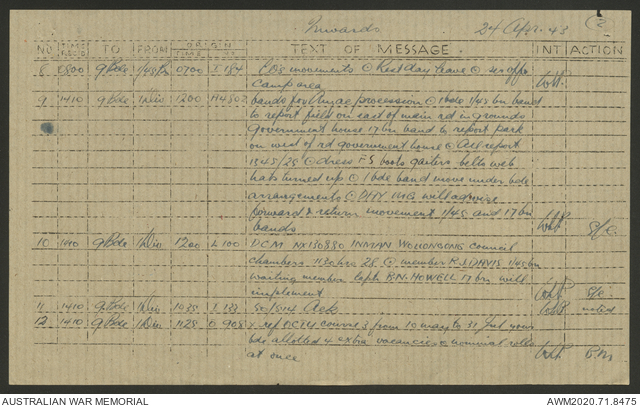 Inwards 24 Apr. 43 (2)
NO TIME REC'D TO FROM ORIGIN TIME NO TEXT OF MESSAGE. INT ACTION
8 0800 9 Bde 1/45 Bn 0700 I 184 COs movements ⊙ Rest day leave ⊙
Camp area
9 1410 9 Bde 1 Div 1200 bands for Anzac procession ⊙ 1 bde 1/45 bn band
to report field on east of main rd in grounds
government house 17 bn band to report park
on west of rd government house ⊙ All report
1545/25 ⊙ dress FS boots gaiters belts web
hats turned up ⊙ 1 bde band move under bde
arrangements ⊙ will advise
forward & return movement 1/45 and 17 bn
bands S/C.
10 1410 9 Bde 1 Div 1200 L 100 DCM NX130880 INMAN WOLLONGONG council
chambers 1130 hrs 28 ⊙ member 1/45 bn
waiting member capt R.N. HOWELL 17 bn will
implement S/C.
11 1410 9 Bde 1 Div 1035 I 133 50/514 Ack noted
12 1410 9 Bde 1 Div 1125 O 905 ref course 3 from 10 may to 31 your
bde allotted 4 extra vacancies ⊙ nominal rolls
at once B.M
AUSTRALIAN WAR MEMORIAL AWM2020.71.8475